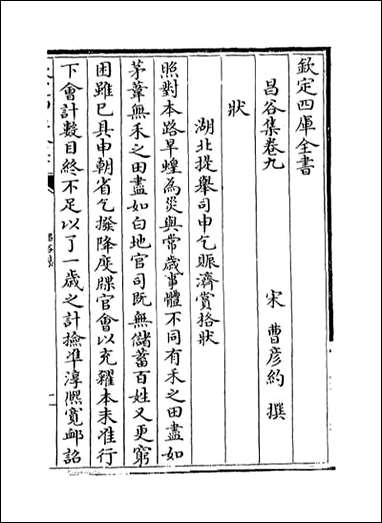 欽定四庫全書
昌谷集卷九
宋 曹彦約 撰
狀
湖北提舉司申乞賑濟賞格狀
照對本路旱蝗為災與常歲事體不同有禾之田盡如
茅葦無禾之田盡如白地官司既無儲蓄百姓又更窮
困雖已具申朝省乞撥降度牒官會以充糴本未准行
下會計數目終不足以了一歲之計撿凖淳熈寬邮詔